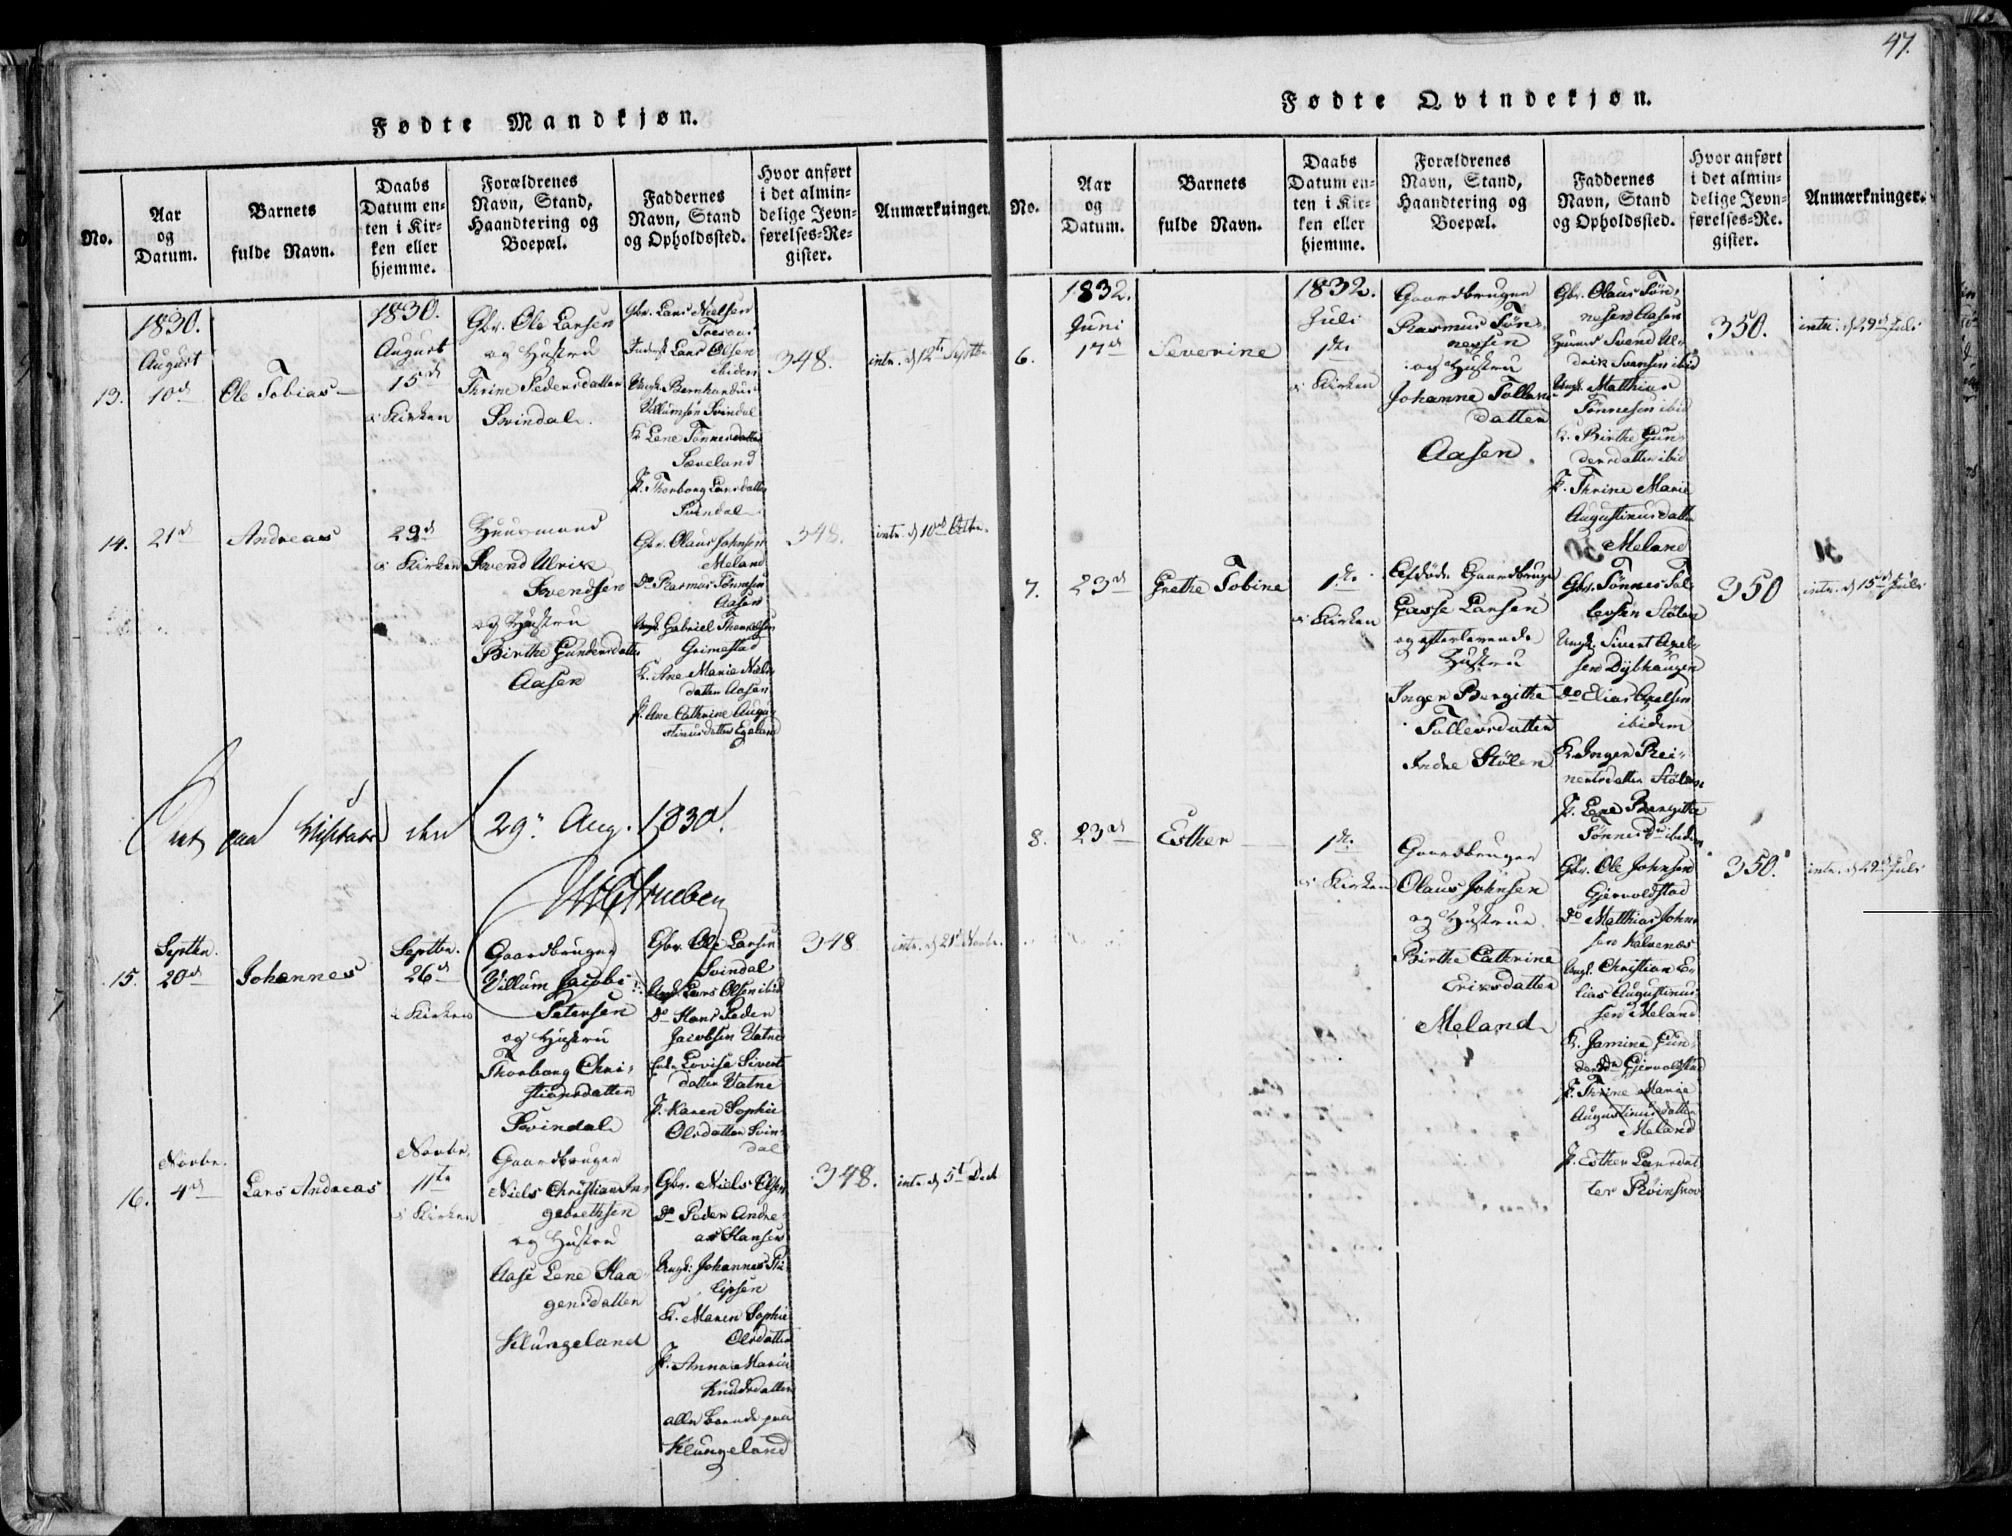 47.
Fødte Mandkjøn.
No.
Aar
og
Datum.
Barnets
fulde Navn.
Daabs
Datum en-
ten i Kir-
ken eller
hjemme.
Forældrenes
Navn, Stand,
Haandtering og
Boepæl.
Faddernes
Navn, Stand
og Opholdssted.
Hvor anført
i det almin-
delige Jevn-
førelses-Re-
gister.
Anmærkninger.
1830.
August
13. 10d
Ole Tobias
1830.
August
15d
i Kirken
Gbr. Ole Larsen
og Hustru
Thrine Pedersdatter
Svindal.
Gbr. Lars Nielsen
Lars Olsen
ibidem
Ungk. Bernhardus
Villumsen Svindal
K. Lene Tønnesdatter
Sæveland
P. Thorborg Larsdatter
Svindal
348.
intr. d 12te Septbr
14. 21d
Andreas
29d
i Kirken
Huusmand
Svend Ulrik
Svendsen
og Hustru
Birthe Gundersdatter
Aasen
Gbr. Olaus Johnsen
Meland
do Rasmus Tønnesen
Aasen
Ungk. Gabriel
Grimestad
K. Ane Marie Niels-
datter Aasen
P. Ane Cathrine Augu-
stinusdatter Egeland
348.
intr. d 10d Octbr.
paa den 29. Aug. 1830.
Septbr.
15. 20d
Johannes
Septbr.
26d
i Kirken
Gaardbruger
Villum Jacobi
Petersen
og Hustru
Thorborg Chri-
stiansdatter
Svindal
Gbr. Ole Larsen
Svindal
Ungk. Lars Olsen ibid
do Hans Peder
Jacobsen Vatne
Lovise Sivert
datter Vatne
P. Karen Sophie
Olsdatter Svin-
dal
348
intr. d 21d Novbr.
Novbr.
16. 4d
Lars Andreas
Novbr.
11te
i Kirken
Gaardbruger
Niels Christian In-
gebrethsen
og Hustru
Aase Lene Haa-
gensdatter
Klungeland
Gbr. Niels Olsen
do Peder Andre-
as Hansen
Ungk: Johannes Phi-
lipsen
K. Maren Sophie
Olsdatter
P. Anna Maria
Knudsdatter
alle boende paa
Klungeland
348.
intr. d 5t Decb
Fødte Qvindekjøn.
No.
Aar
og
Datum.
Barnets
fulde Navn.
Daabs
Datum en-
ten i Kir-
ken eller
hjemme.
Forældrenes
Navn, Stand,
Haandtering og
Boepæl.
Faddernes
Navn, Stand
og Opholdssted.
Hvor anført
i det almin-
delige Jevn-
førelses-Re-
gister.
Anmærkninger.
1832.
Juni
6. 17d
Severine
1832.
Juli
1te
i Kirken
Gaardbruger
Rasmus Tøn-
nesen
og Hustru
Johanne Tollevs
datter
Aasen
Gbr. Olaus Tøn-
nesen Aasen
Svend Ul-
rik Svensen ibid
Ungk. Mathias
Tønnesen ibid
K. Birthe Gun-
dersdatter ibid
P. Thrine Marie
Augustinusdatter
Meland
350.
intr. d 29d Juli
7. 23d
Grethe Tobine
1te
i Kirken
Afdøde Gaardbruger
Gasse Larsen
og efterlevende
Hustru
Inger Bergithe
Tollevsdatter
Indre Stølen
Gbr. Tønnes Tol-
levsen Stølen
Ungk. Sivert Axel-
sen Dybhaugen
do Elias Axelsen
ibidem
K. Inger Rei-
nertsdatter Stølen
P. Lene Bergithe
Tønnesdtr ibidem
350
intr. d 15d Juli
8. 23d
Esther
1te
i Kirken
Gaardbruger
Olaus Johnsen
og Hustrue
Birthe Cathrine
Eriksdatter
Meland
Gbr. Ole Johnsen
Gjervoldstad
do Matthias John-
sen Kalvenæs
Ungk. Christian E-
lias Augustinus-
sen Meland
K. Jamine Gun-
dersdtr Gjervoldstad
P. Thrine Marie
Augustinusdatter
Meland
P. Esther Larsdat
ter
350.
intr. d 29d Juli